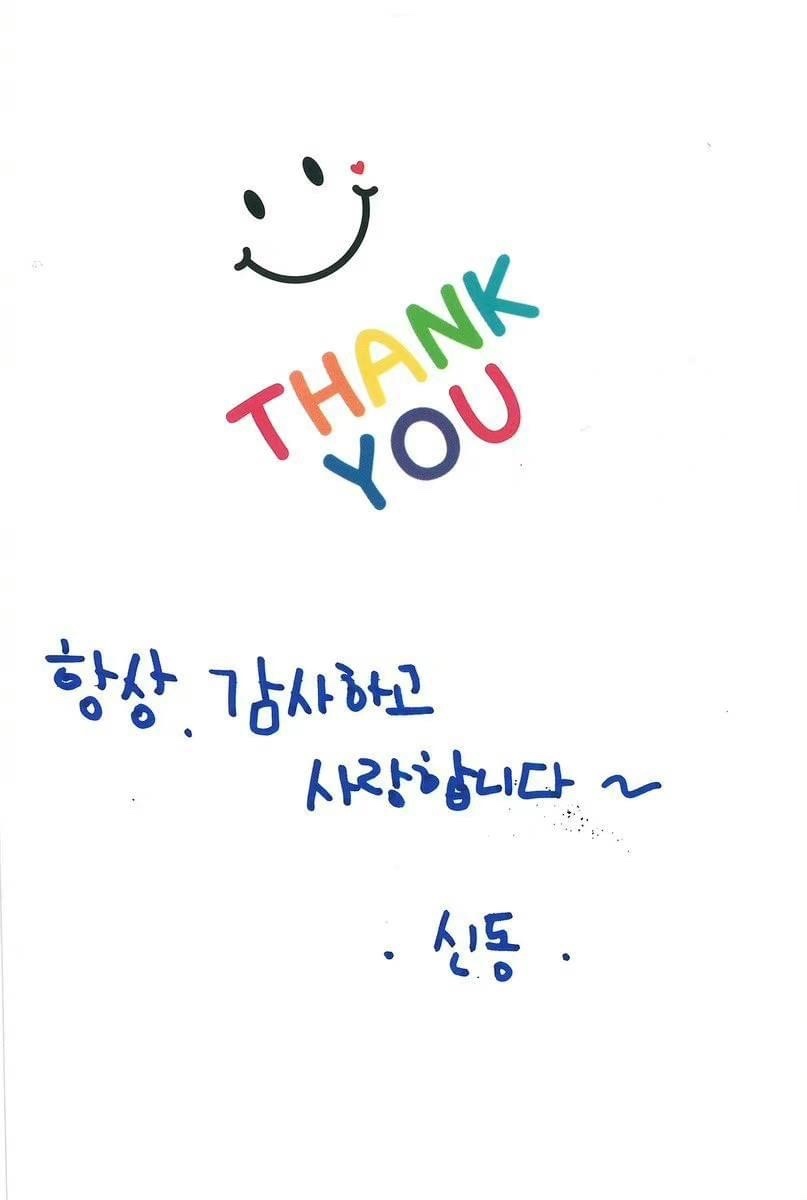 THANK
YOU
항상. 감사하고
사랑합니다 ~
. 신동 .